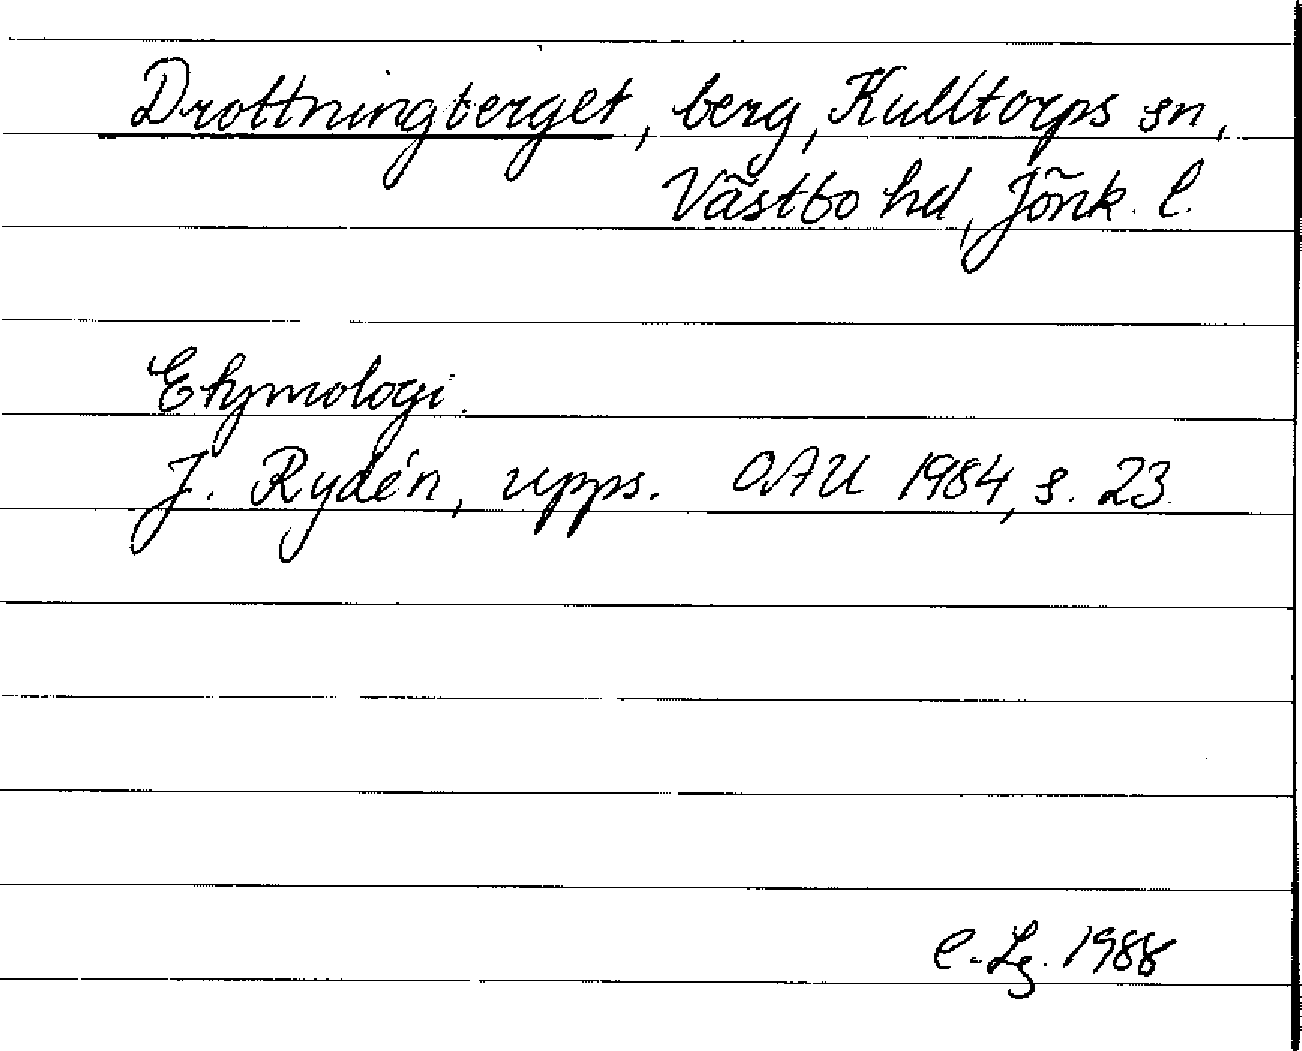 Drottningberget, berg, Kulltorps sn,
Västbo hd, Jönk. l.
Etymologi.
J. Rydén, upps. OAU 1984, s. 23
C-Lg. 1988